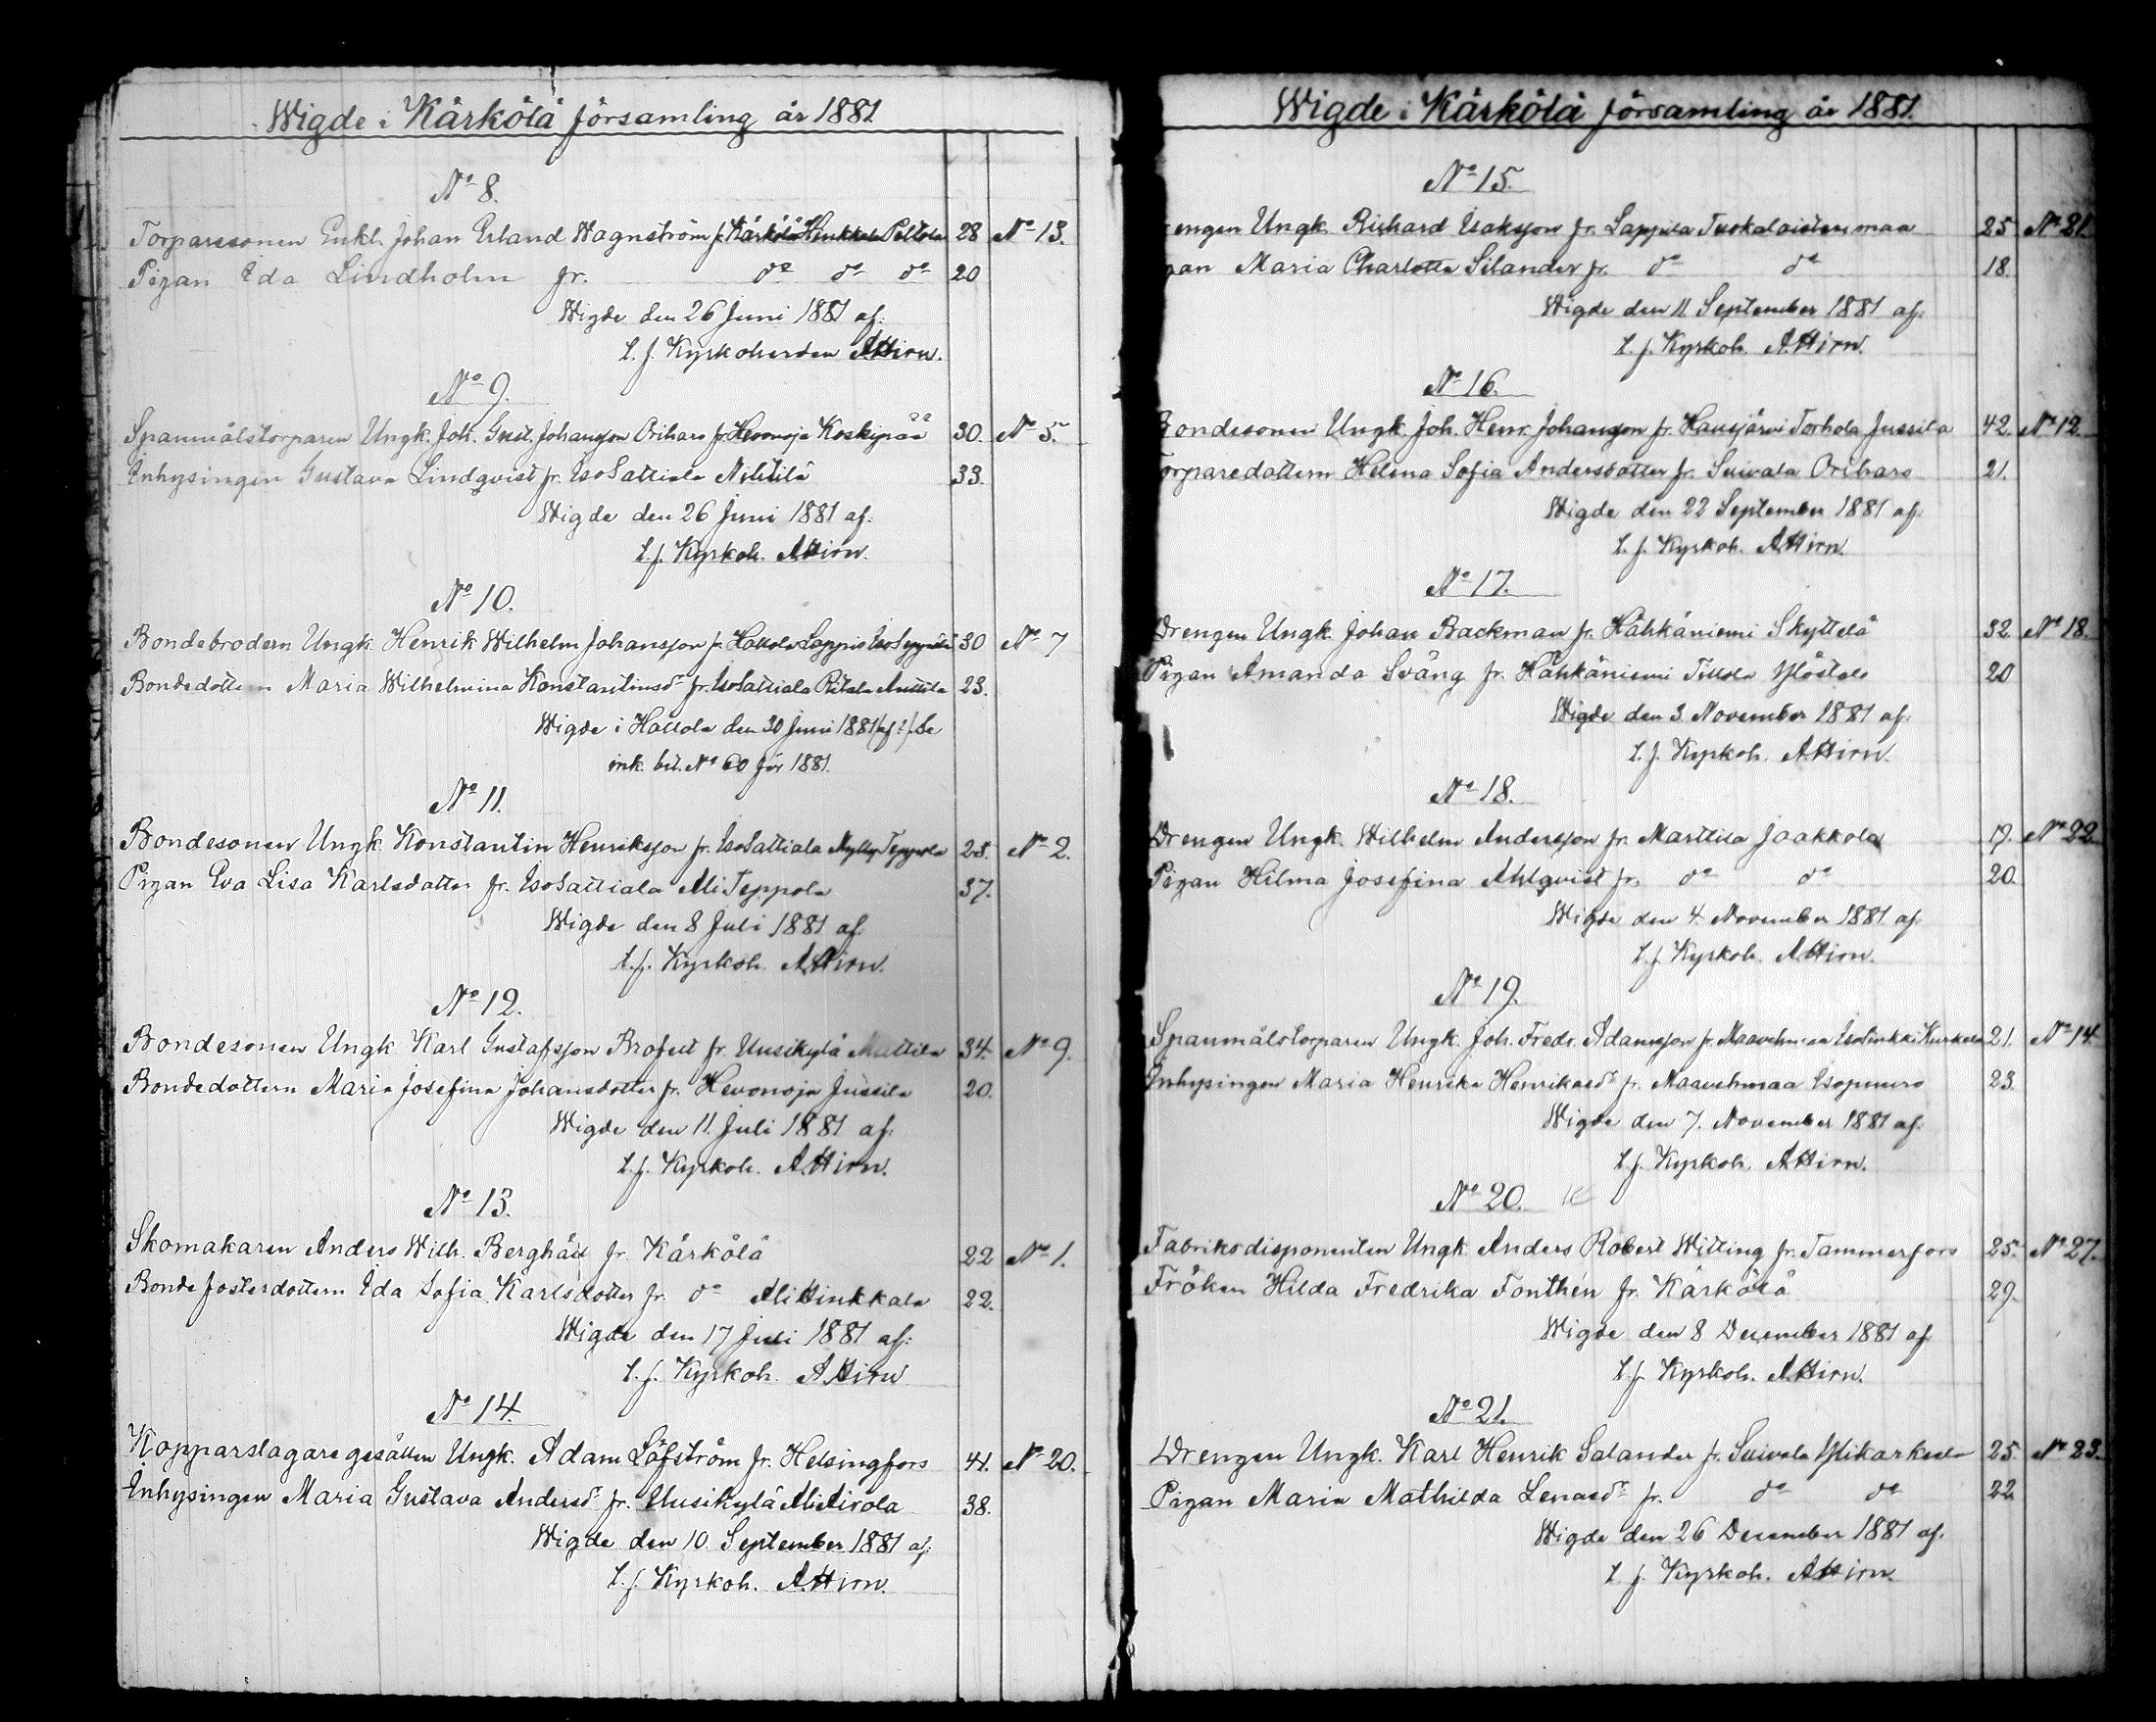 Wigde i Kärkölä församling år 1881
No 8.
Torparesonen Enkl. Johan Erland Wagnström fr. Kärkölä Hinkkala Peltola 28 No 13.
Pigan Ida Lindholm fr. do do do 20
Wigde den 26 Juni 1881 af:
t. f. Kyrkoherden A. Hirn.
No 9.
Spanmålstorparen Ungk. Joh. Gust. Johansson Oriharo fr. Hevonoja Koskipää 30. No 5.
Inhysingen Gustava Lindqvist fr. IsoSattiala 33.
Wigde den 26 Juni 1881 af:
t. f. Kyrkoh. A. Hirn.
No 10.
Bondebrodern Ungk. Henrik Wilhelm Johansson fr. Hollola IsoSeppälä 30 No 7
Bondedottern Maria Wilhelmina Konstantinsdr fr. IsoSattiala Anttila 23.
Wigde i Hollola den 30 Juni 1881 /af?/. Se
ink. bil. No 60 för 1881.
No 11.
Bondesonen Ungk. Konstantin Henriksson fr. IsoSattiala Mylly Teppola 28. No 2.
Pigan Eva Lisa Karlsdotter fr. IsoSattiala Ali Teppola 37.
Wigde den 8 Juli 1881 af:
t. f. Kyrkoh. A. Hirn.
No 12.
Bondesonen Ungk. Karl Gustafsson Brofelt fr. Uusikylä Mattila 34. No 9.
Bondedottern Maria Josefina Johansdotter fr. Hevonoja Jussila 20.
Wigde den 11. Juli 1881 af:
t. f. Kyrkoh. A. Hirn.
No 13.
Skomakaren Anders Wilh. Berghäll fr. Kärkölä 22 No 1.
Bonde fosterdottern Ida Sofia Karlsdotter fr. do AliHinkkala 22.
Wigde den 17 Juli 1881 af:
t. f. Kyrkoh. A. Hirn
No 14.
Kopparslagaregesällen Ungk. Adam Löfström fr. Helsingfors 41. No 20.
Inhysingen Maria Gustava Andersdr fr. Uusikylä AliAirola 38.
Wigde den 10. September 1881 af:
t. f. Kyrkoh. A. Hirn.
Wigde i Kärkölä församling år 1881.
No 15.
rengen Ungk. Richard Isaksson fr. Lappila 25 No 21.
gan Maria Charlotta Silander fr. do do 18.
Wigde den 11 September 1881 af:
t. f. Kyrkoh. A. Hirn.
No 16.
Bondesonen Ungk. Joh. Henr. Johansson fr. Hausjärvi Torhola Jussila 42. No 12.
Torparedottern Helena Sofia Andersdotter fr. Suivala Oriharo 21.
Wigde den 22 September 1881 af:
t. f. Kyrkoh. A. Hirn.
No 17.
Drengen Ungk. Johan Backman fr. Hähkäniemi Skyttelä 32. No 18.
Pigan Amanda Sväng fr. Hähkäniemi Tillola Ylöstalo 20
Wigde den 3. November 1881 af:
t. f. Kyrkoh. A. Hirn.
No 18.
Drengen Ungk. Wilhelm Andersson fr. Marttila Jaakkola 19. No 22.
Pigan Hilma Josefina Ahlqvist fr. do do 20.
Wigde den 4. November 1881 af:
t. f. Kyrkoh. A. Hirn.
No 19.
Spanmålstorparen Ungk. Joh. Fredr. Adamsson fr. Maavehmaa Kurkela 21. No 14.
Inhysingen Maria Henrika Henriksdr fr. Maavehmaa Isopuuro 23.
Wigde den 7. November 1881 af:
t. f. Kyrkoh. A. Hirn.
No 20.
Fabriksdisponenten Ungk. Anders Robert Witting fr. Tammerfors 25. No 27.
Fröken Hilda Fredrika Fonthén fr. Kärkölä 29.
Wigde den 8 December 1881 af
t. f. Kyrkoh. A. Hirn.
No 21.
Drengen Ungk. Karl Henrik Salander fr. Suivala Ylikarkela 25. No 23.
Pigan Maria Mathilda Lenasdr fr. do do 22
Wigde den 26 December 1881 af.
t. f. Kyrkoh. A. Hirn.